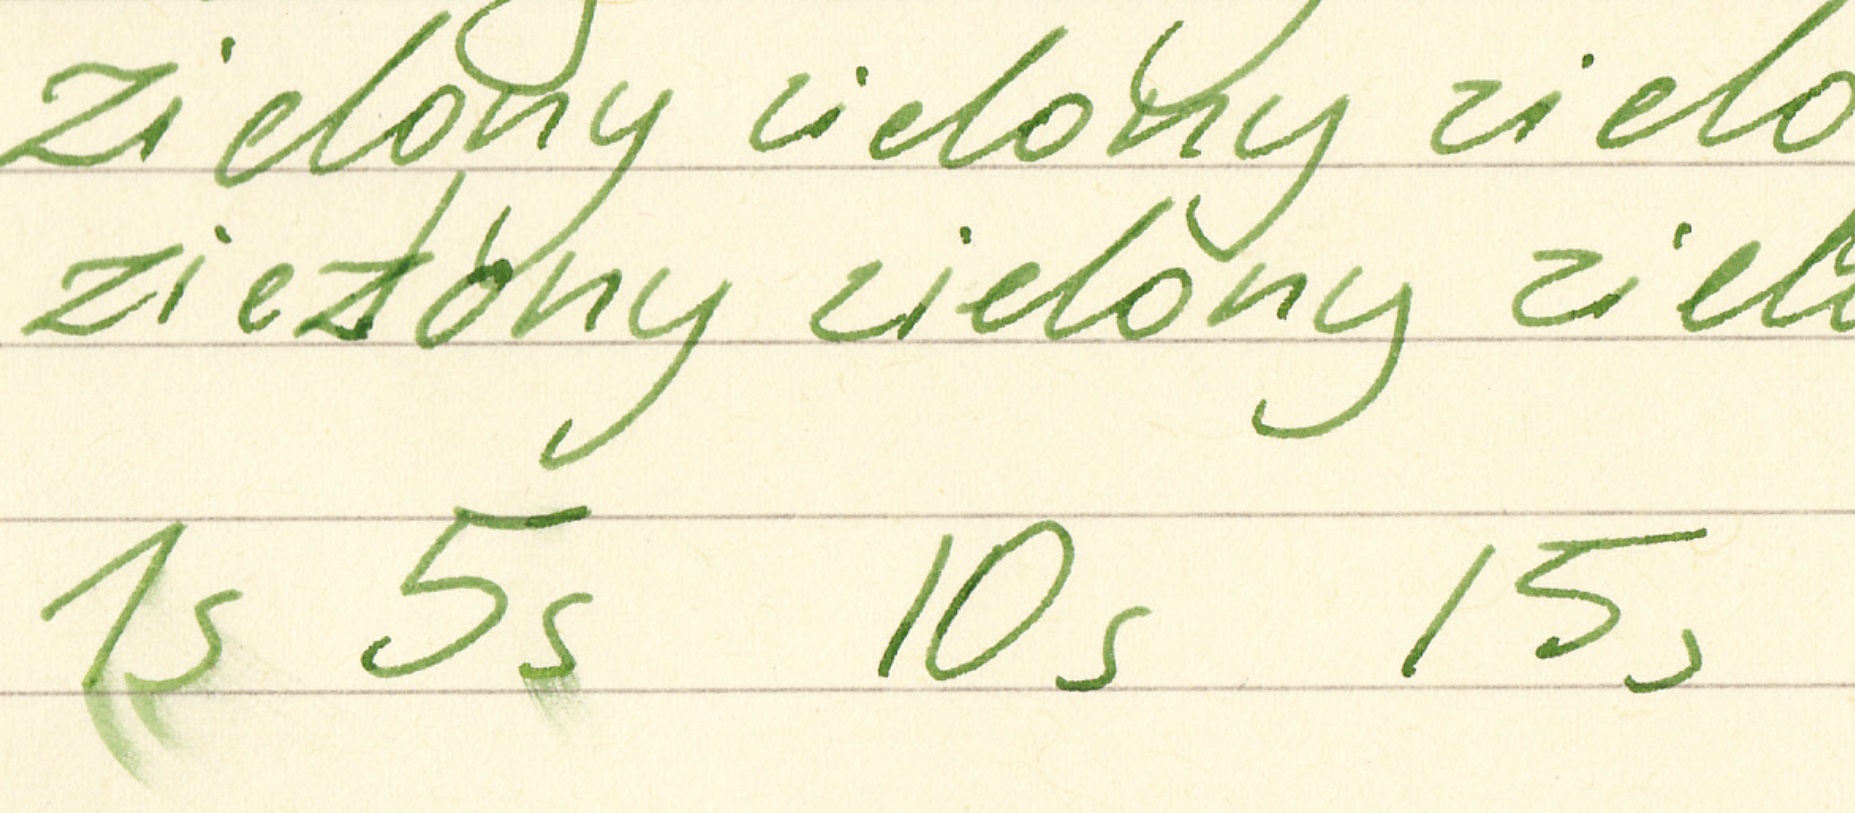 zielony zielony zielo
zielony zielony zielo
1s 5s 10s 15s